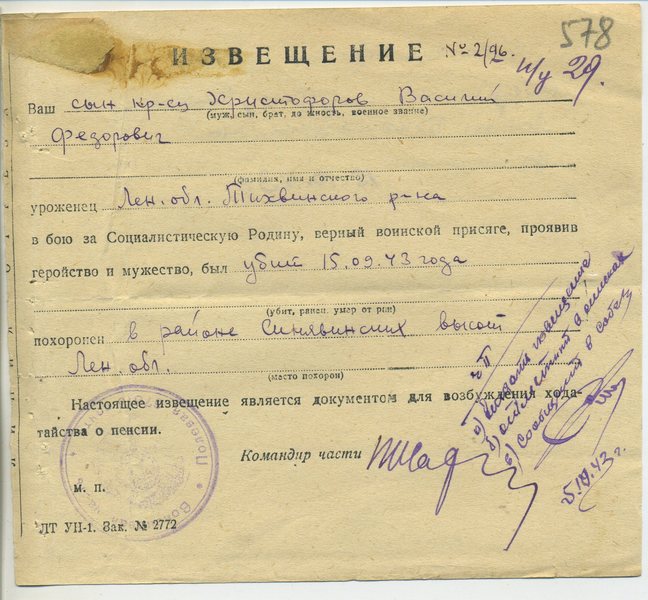 578
ИЗВЕЩЕНИЕ № 2/96.
н/у 29.
Ваш сын кр-ец Христофоров Василий
(муж, сын, брат, должность, военное звание)
Федорович
(фамилия, имя и отчество)
уроженец Лен. обл. Тихвинского р-на
в бою за Социалистическую Родину, верный воинской присяге, проявив
геройство и мужество, был убит 15.09.43 года
(убит, ранен, умер от ран)
похоронен в районе Синявинских высот
Лен. обл.
(место похорон)
Настоящее извещение является документом для возбуждения хода-
тайства о пенсии.
Командир части
м. п.
Полевая
ЛТ УП-1. Зак. № 2772
а) извещение
б)
в) сообщить в собес
43 г.